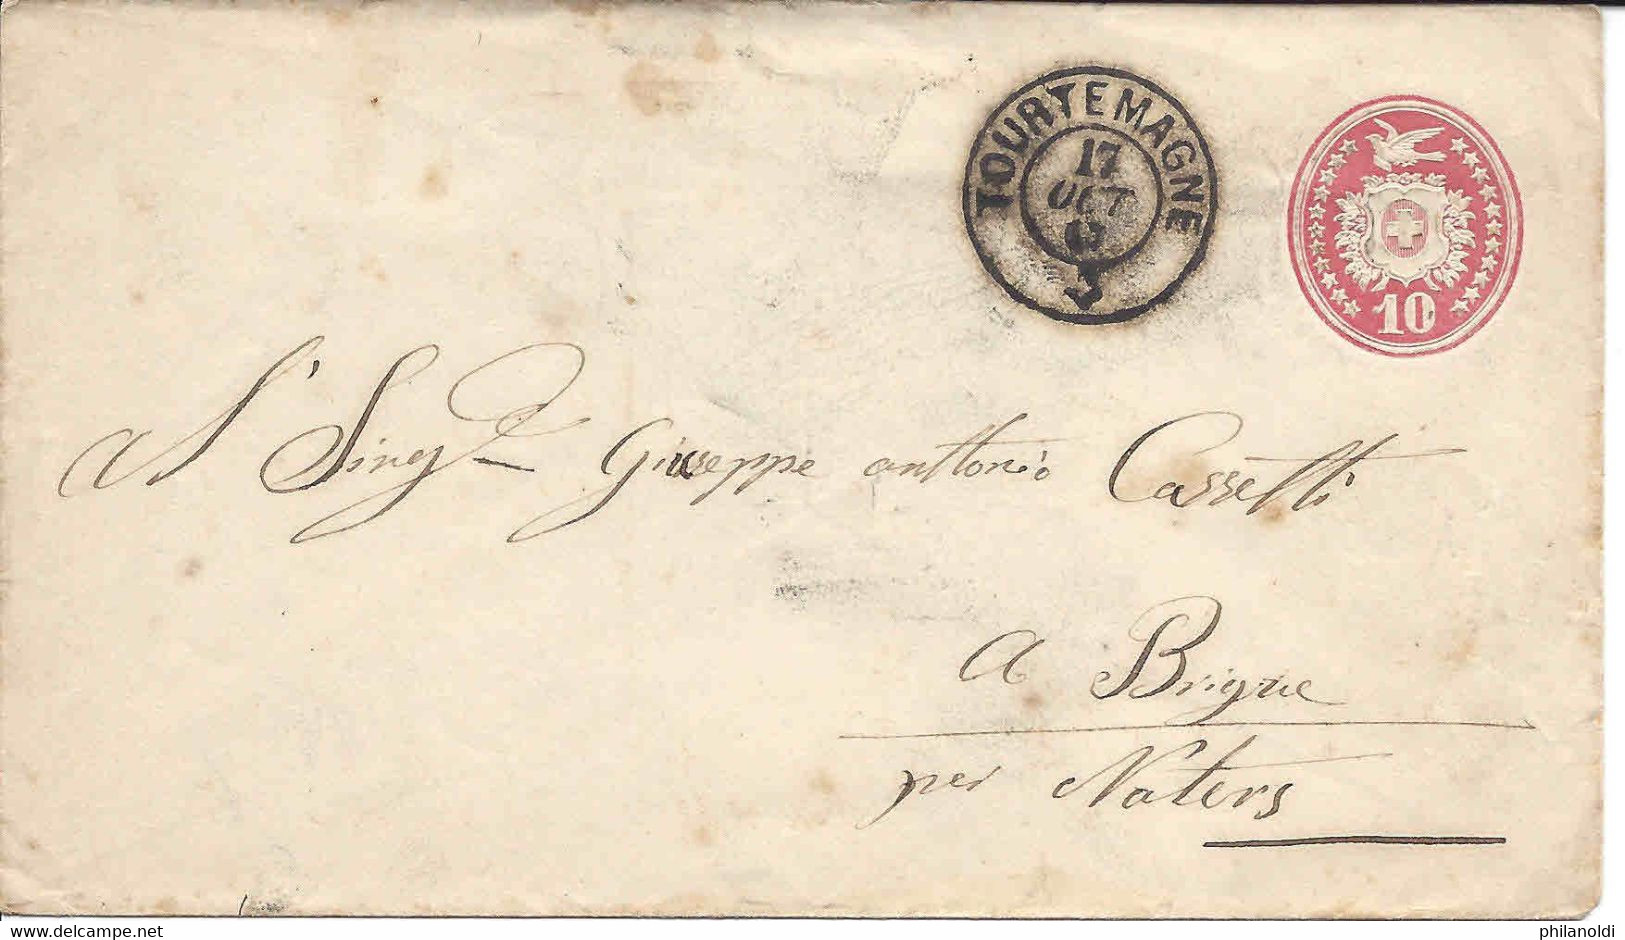 TOURTEMAGNE
17
OCT
10
Al Sing.r Giuseppe anttonio Cassetti
a Brigue
per Naters
www.delcampe.net
philanoldi